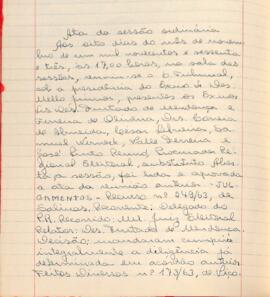 Ata da sessão ordinária
Aos oito dias do mês de novem
bro de um mil novecentos e sessenta
e três, às 17,00 horas, na sala das
sessões, reuniu-se o E. Tribunal,
sob a presidência do Exmo. Sr. Des.
Mello Junior, presentes os Exmos
Srs. Des. Furtado de Mendonça e
Ferreira de Oliveira, Drs. Correia
de Almeida, Cesar Silveira, Sa
muel Werneck, Valle Ferreira e
José Pinto Renó, Procurador Re
gional Eleitoral, substituto. Aber
ta a sessão, foi lida e aprovada
a ata da reunião anterior. - JUL
GAMENTOS - Recurso nº 249/63, de
Salinas. Recorrente: Delegado do
P.R. Recorrido: MM. Juiz Eleitoral
Relator: Des. Furtado de Mendonça.
Decisão: mandaram cumprir
integralmente a diligência já
determinada em acórdão anterior.
Feitos Diversos nº 173/63, de